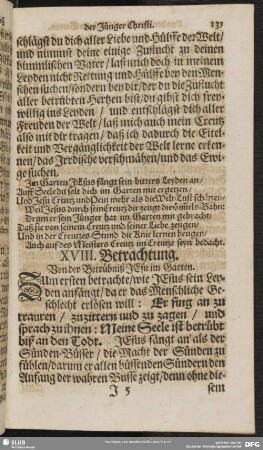 der Jünger Christi. 137
schlägst du dich aller Liebe und Hülffe der Welt/
und nimmst deine einige Zuflucht zu deinem
himmlischen Vater/ laß mich doch in meinem
Leyden nicht Rettung und Hülffe bey den Men-
schen suchen/ sondern bey dir/ der du die Zuflucht
aller betrübten Hertzen bist/ du gibst dich frey-
willig ins Leyden / und entschlägst dich aller
Freuden der Welt/ laß mich auch mein Creutz
also mit dir tragen/ daß ich dadurch die Eitel-
keit und Vergänglichkeit der Welt lerne erken-
nen/ das Irrdische verschmähen/ und das Ewi-
ge suchen.
Im Garten JEsus fängt sein bitters Leyden an/
Auff Seele du solt dich im Garten mit ergetzen/
Und JEsu Creutz und Pein mehr als die Welt-Lust schätzen/
Weil JEsus durch sein Creutz dir zeugt die Himmels-Bahn:
Drum er sein Jünger hat im Garten mit gebracht/
Daß sie von seinem Creutz und seiner Liebe zeugen/
Und in der Creutzes-Stund die Knie lernen beugen/
Auch auf des Meisters Creutz im Creutze seyn bedacht.
XVIII. Betrachtung.
Von der Betrübniß JEsu im Garten.
Zum ersten betrachte/ wie JEsus sein Ley-
den anfängt/ da er das Menschliche Ge-
schlecht erlösen will: Er fing an zu
trauren / zu zittern und zu zagen / und
sprach zu ihnen: Meine Seele ist betrübt
biß an den Todt. JEsus fängt an als der
Sünden-Büsser / die Macht der Sünden zu
fühlen/ darum er allen büssenden Sündern den
Anfang der wahren Busse zeigt/ denn ohne die-
J 5 sem